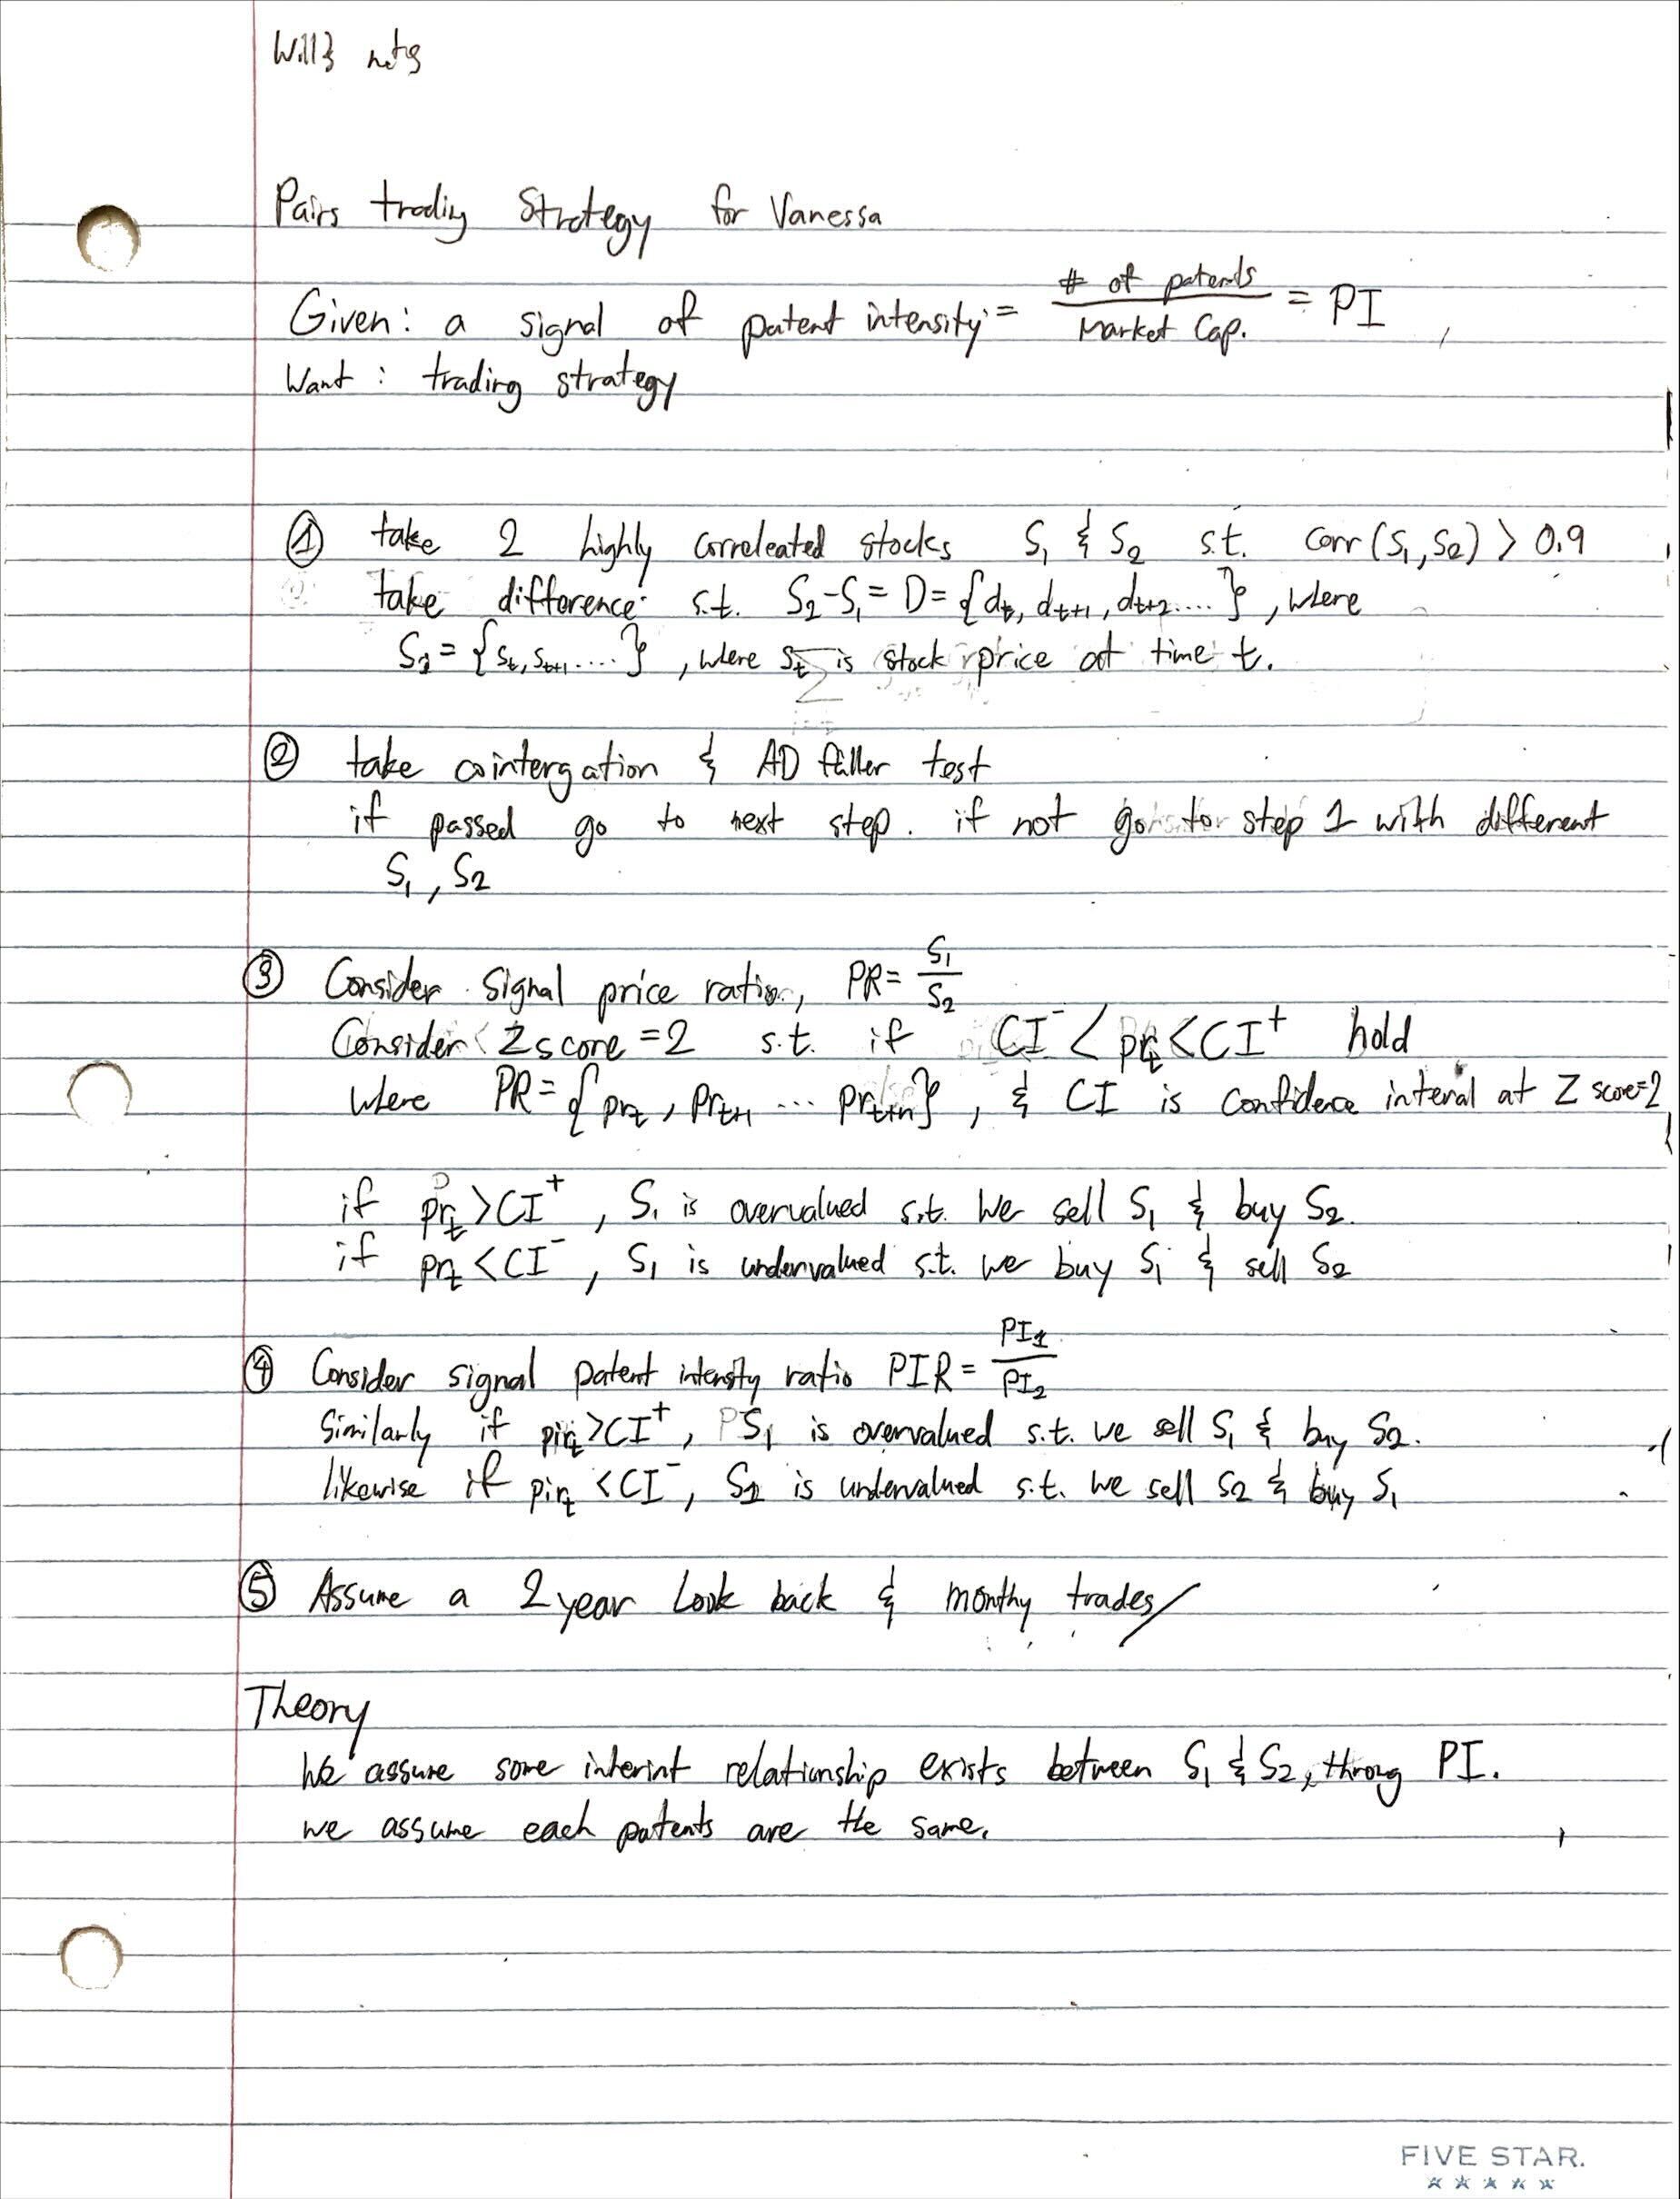 Will's notes
Pairs trading Strategy for Vanessa
Given: a signal of patent intensity = # of patents / Market Cap. = PI ,
Want : trading strategy
① take 2 highly correleated stocks S₁ & S₂ s.t. corr (S₁, S₂) > 0.9
take difference s.t. S₂-S₁ = D = {dₜ, dₜ₊₁, dₜ₊₂ .... } , where
S₁ = { sₜ, sₜ₊₁ .... } , where sₜ is stock price at time t.
② take cointergation & AD fuller test
if passed go to next step. if not go to step 1 with different
S₁ , S₂
③ Consider signal price ratio, PR = S₁ / S₂
Consider Z score = 2 s.t. if CI⁻ < prₜ < CI⁺ hold
where PR = { prₜ , prₜ₊₁ ... prₜ₊ₙ } , & CI is confidence interval at Z score=2
if prₜ > CI⁺ , S₁ is overvalued s.t. we sell S₁ & buy S₂.
if prₜ < CI⁻ , S₁ is undervalued s.t. we buy S₁ & sell S₂
④ Consider signal patent intensity ratio PIR = PI₁ / PI₂
Similarly if pirₜ > CI⁺, S₁ is overvalued s.t. we sell S₁ & buy S₂.
likewise if pirₜ < CI⁻, S₁ is undervalued s.t. we sell S₂ & buy S₁
⑤ Assume a 2 year look back & monthy trades
Theory
We assume some interint relationship exists between S₁ & S₂, throug PI.
we assume each patents are the same.
FIVE STAR.